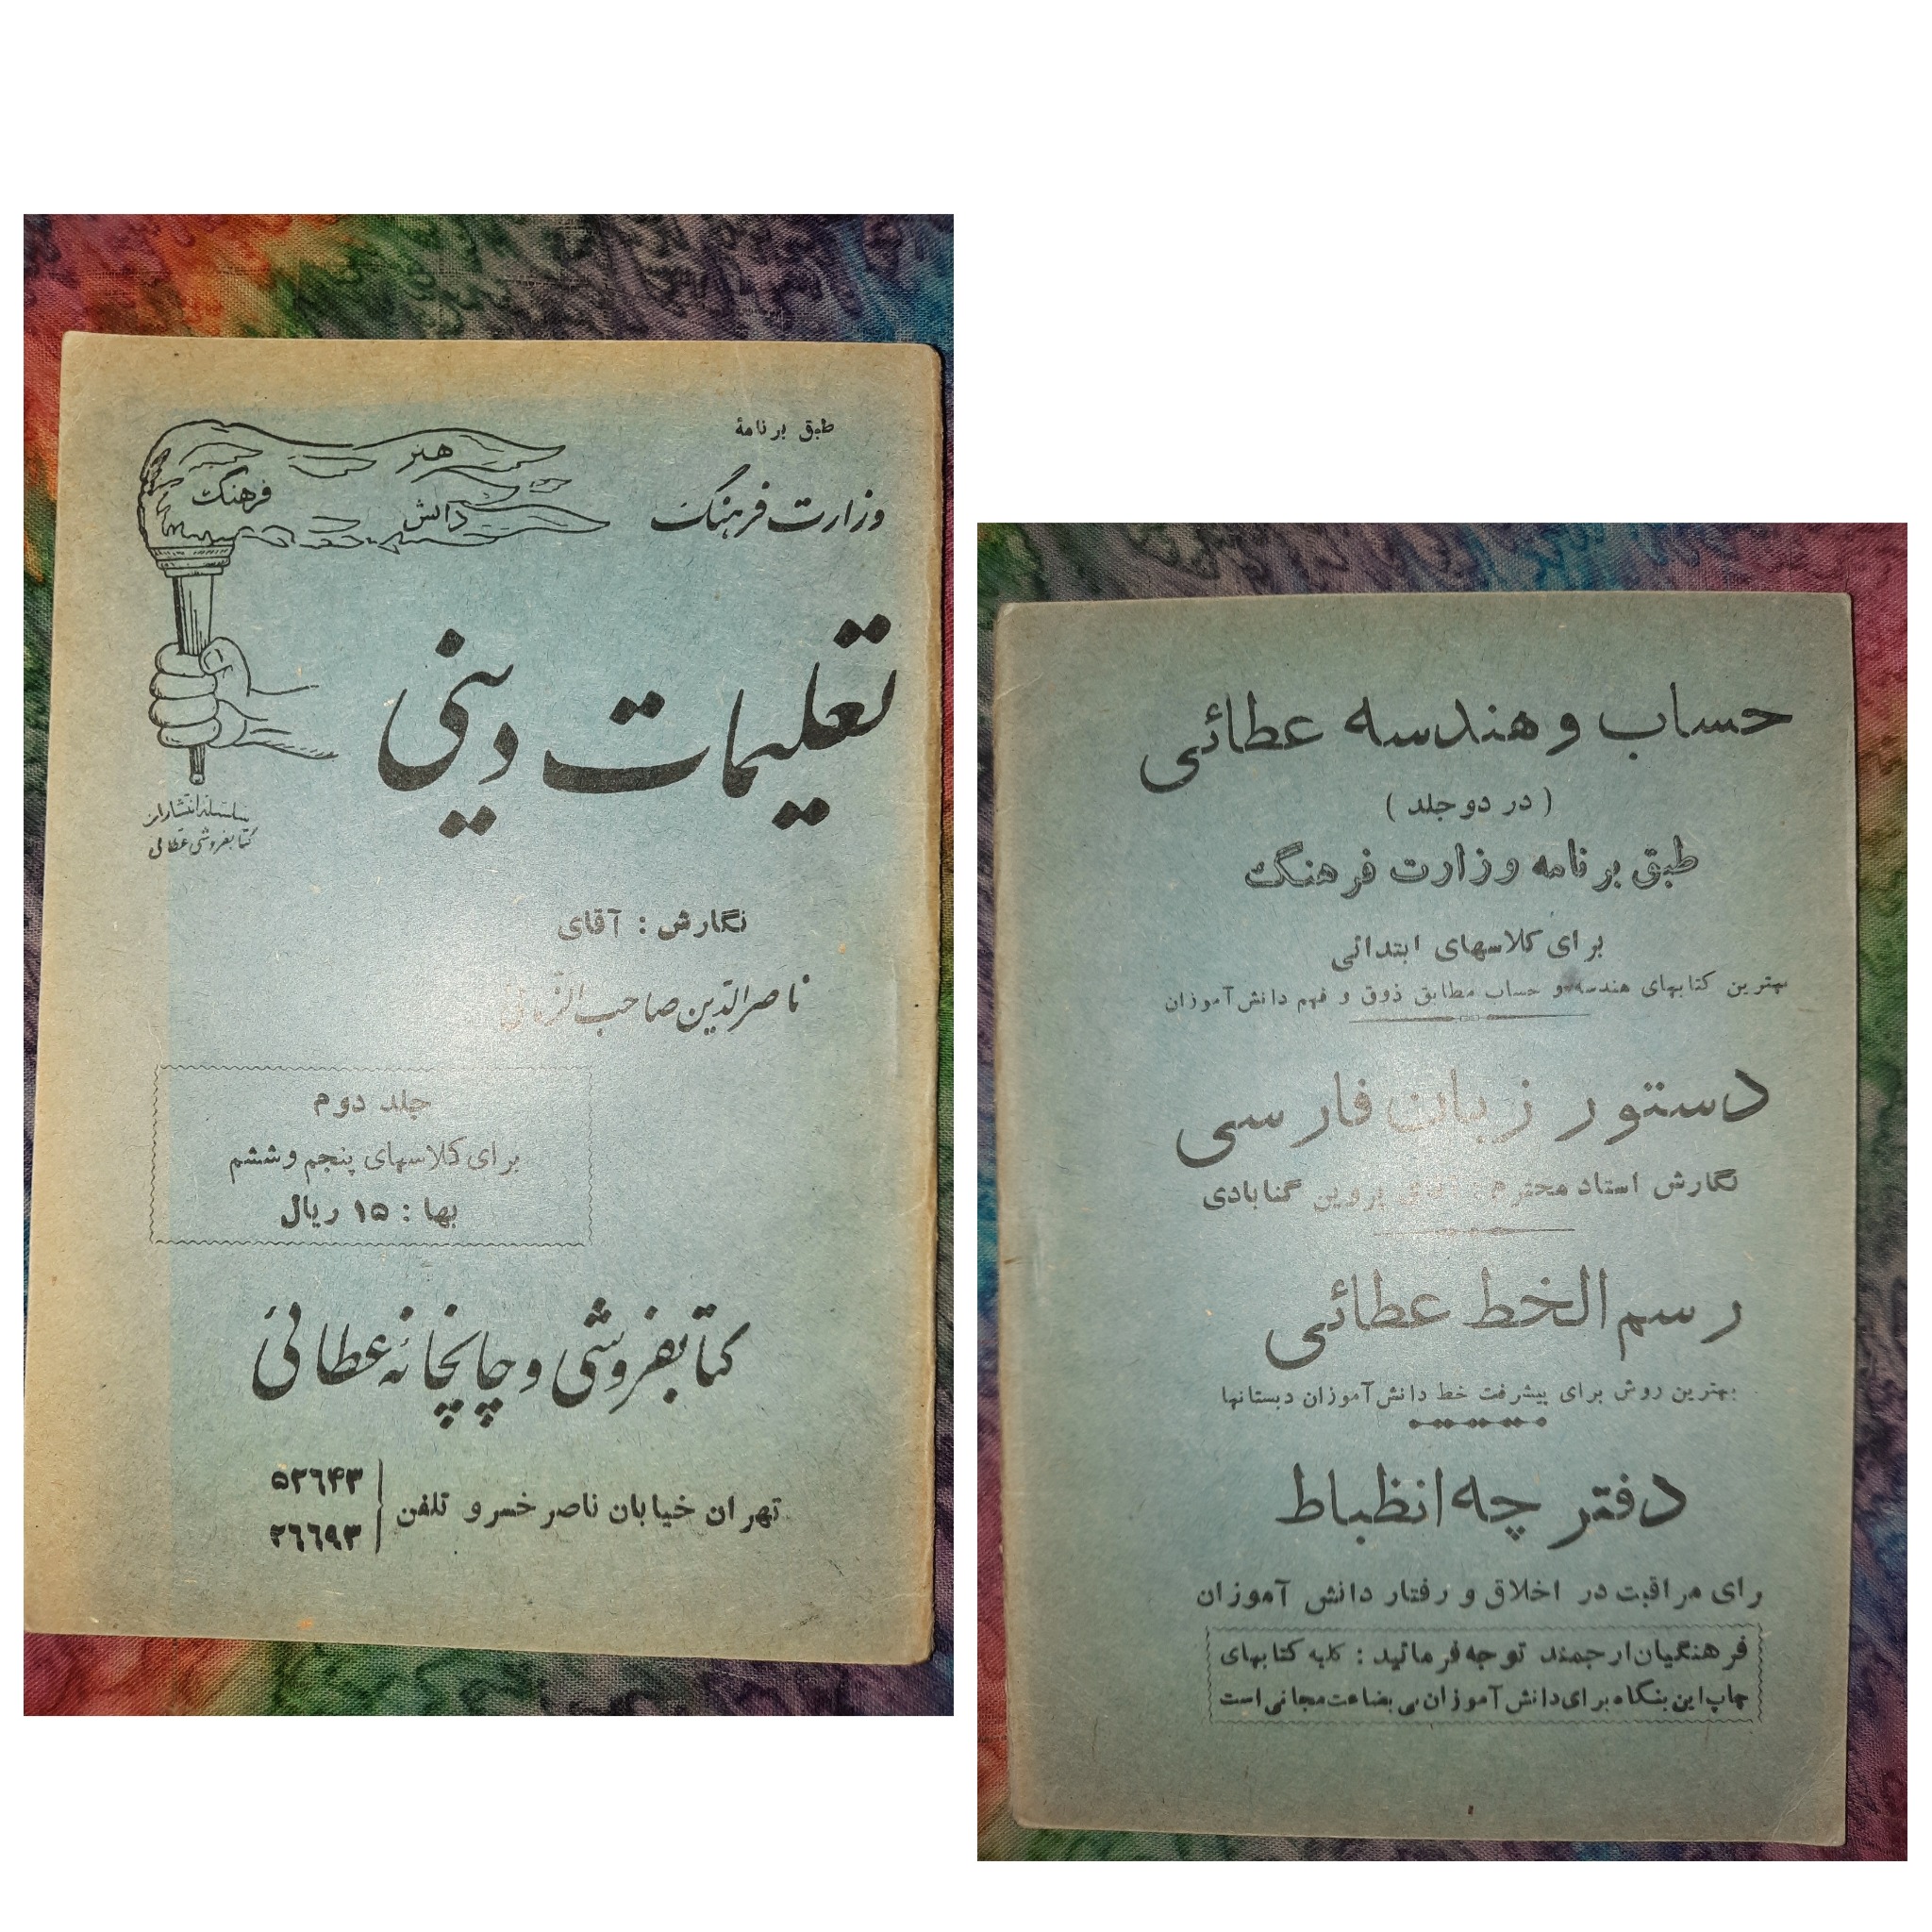 طبق برنامهٔ
وزارت فرهنگ
هنر
فرهنگ
دانش
تعلیمات دینی
سلسله انتشارات
کتابفروشی عطائی
نگارش : آقای
ناصرالدین صاحب الزمانی
جلد دوم
برای کلاسهای پنجم و ششم
بها : ۱۵ ریال
کتابفروشی و چاپخانهٔ عطائی
تهران خیابان ناصر خسرو تلفن
۵۲۶۴۳
۲۶۶۹۳
حساب و هندسه عطائی
( در دو جلد )
طبق برنامه وزارت فرهنگ
برای کلاسهای ابتدائی
بهترین کتابهای هندسه و حساب مطابق ذوق و فهم دانش آموزان
دستور زبان فارسی
نگارش استاد محترم آقای پروین گنابادی
رسم الخط عطائی
بهترین روش برای پیشرفت خط دانش آموزان دبستانها
دفتر چه انظباط
رای مراقبت در اخلاق و رفتار دانش آموزان
فرهنگیان ارجمند توجه فرمائید : کلیه کتابهای
چاپ این بنگاه برای دانش آموزان بی بضاعت مجانی است